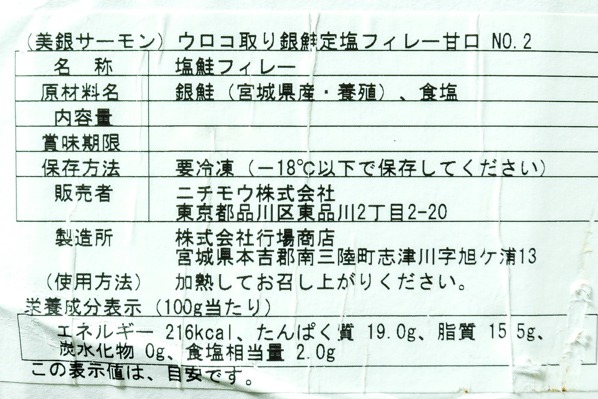 (美銀サーモン) ウロコ取り銀鮭定塩フィレー甘口 NO.2
名 称 塩鮭フィレー
原材料名 銀鮭（宮城県産・養殖）、食塩
内容量
賞味期限
保存方法 要冷凍（－18℃以下で保存してください）
販売者 ニチモウ株式会社
東京都品川区東品川2丁目2-20
製造所 株式会社行場商店
宮城県本吉郡南三陸町志津川字旭ケ浦13
(使用方法) 加熱してお召し上がりください。
栄養成分表示（100g当たり）
エネルギー 216kcal、たんぱく質 19.0g、脂質 15.5g、
炭水化物 0g、食塩相当量 2.0g
この表示値は、目安です。